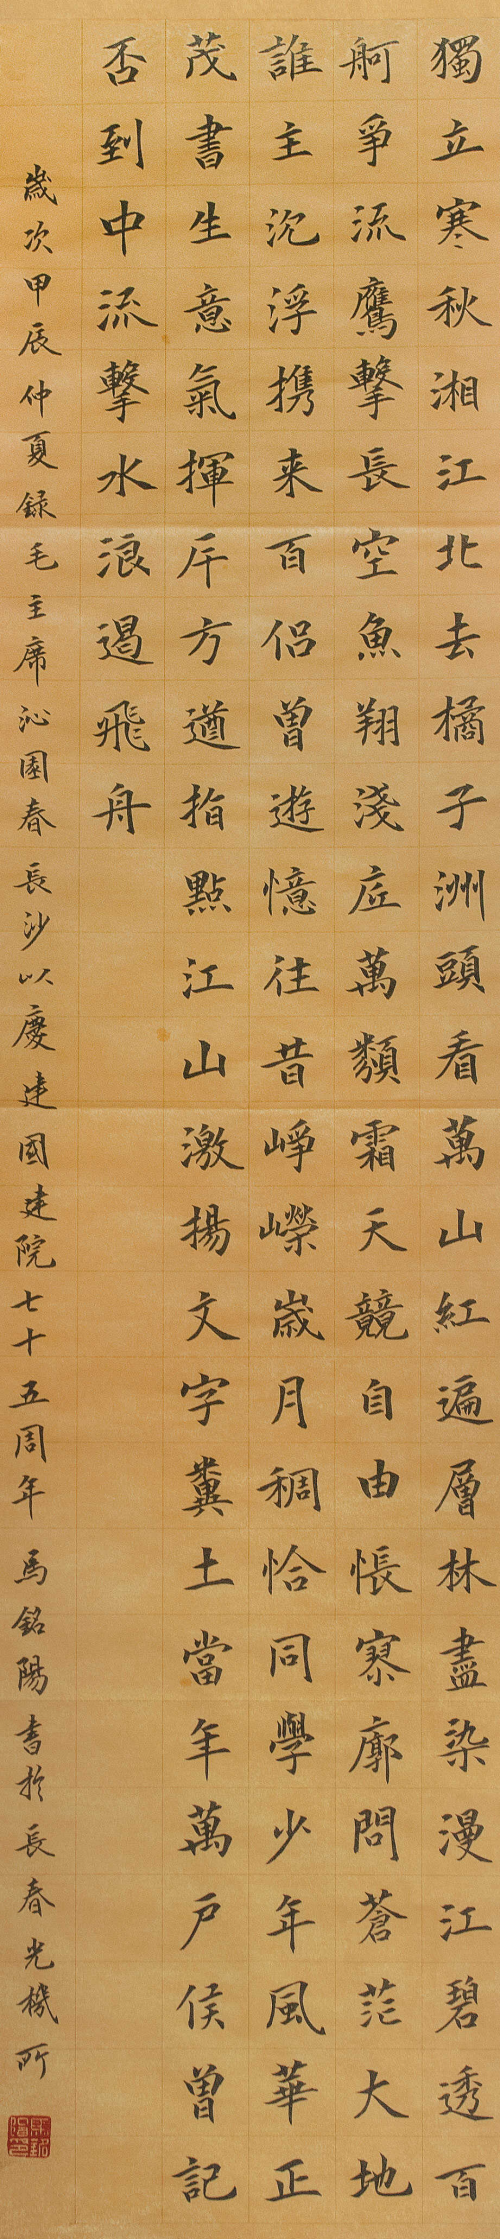 獨立寒秋湘江北去橘子洲頭看萬山紅遍層林盡染漫江碧透百
舸爭流鷹擊長空魚翔淺底萬類霜天競自由悵寥廓問蒼茫大地
誰主沉浮携来百侣曾遊憶往昔崢嶸崴月稠恰同學少年風華正
茂書生意氣揮斥方遒指點江山激揚文字糞土當年萬戶侯曾記
否到中流擊水浪遏飛舟
歲次甲辰仲夏録毛主席沁園春長沙以慶建國建院七十五周年馬銘陽書於長春光機所